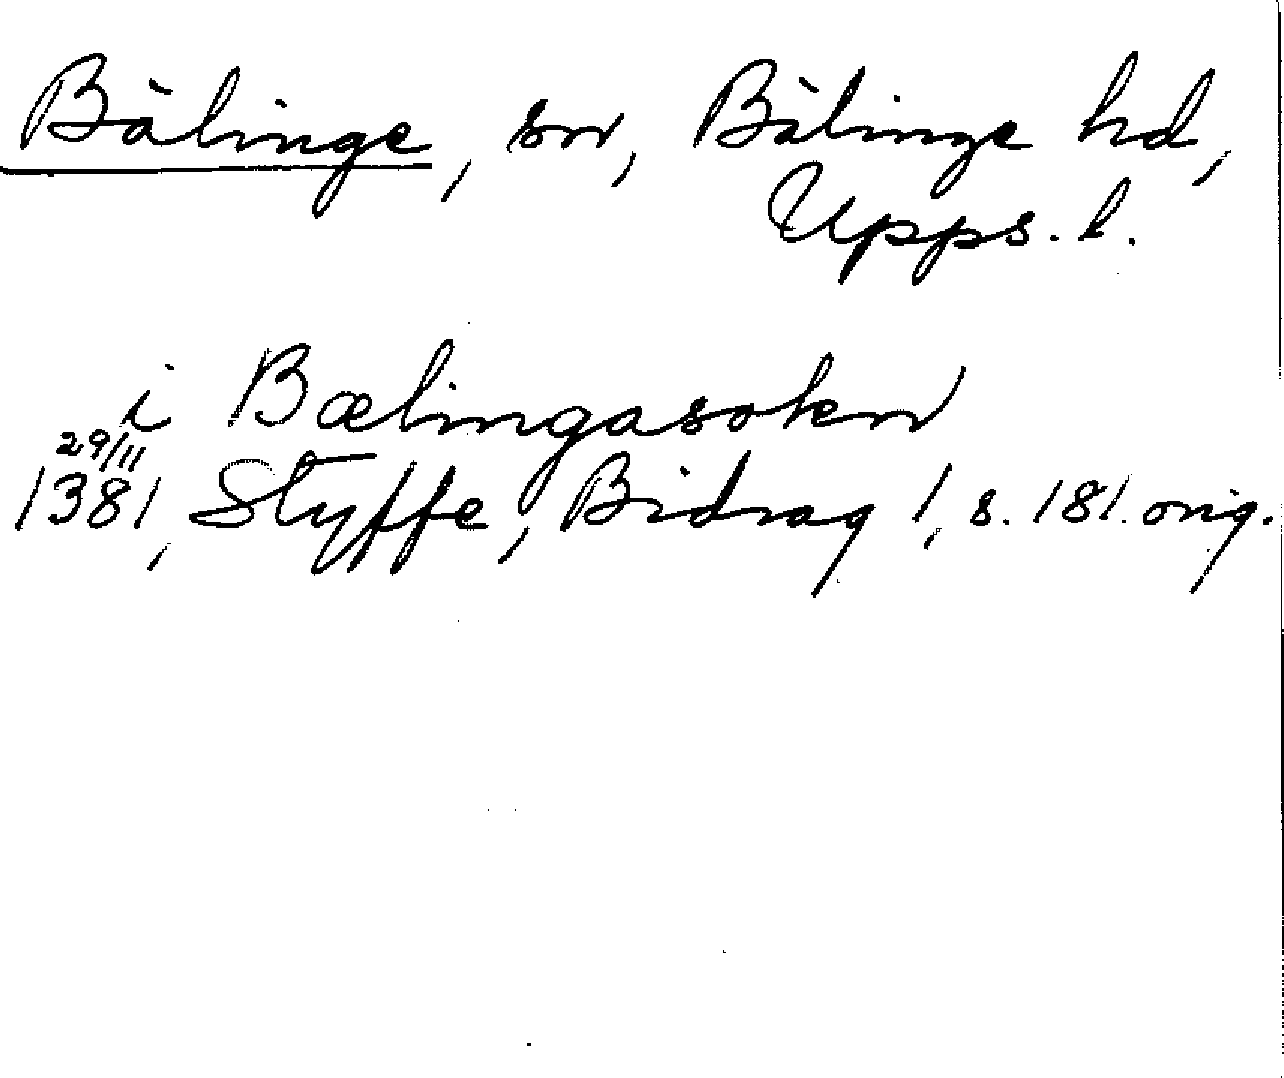 Bälinge, sn, Bälinge hd,
Upps. l.
i Bælingasokn
29/11
1381, Styffe, Bidrag 1, s. 181. orig.